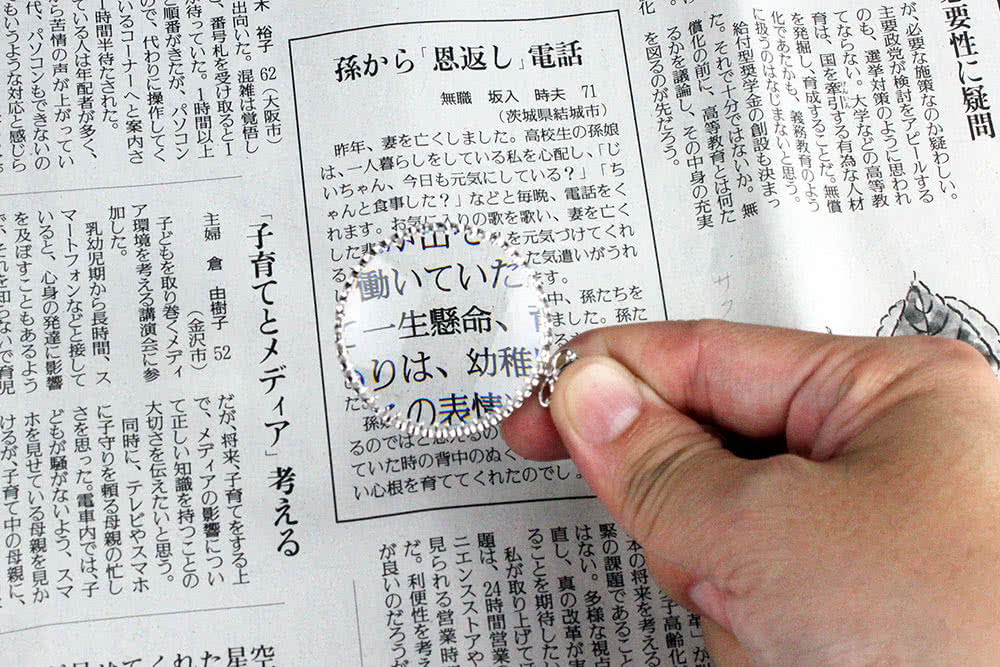 必要性に疑問
が、必要な施策なのか疑わしい。
主要政党が検討をアピールする
のも、選挙対策のように思われ
てならない。大学などの高等教
育は、国を牽引する有為な人材
を発掘し、育成することだ。無償
化であたかも、義務教育のよう
に扱うのはなじまないと思う。
給付型奨学金の創設も決まっ
た。それで十分ではないか。無
償化の前に、高等教育とは何た
るかを議論し、その中身の充実
を図るのが先だろう。
孫から「恩返し」電話
無職 坂入 時夫 71
(茨城県結城市)
昨年、妻を亡くしました。高校生の孫娘
は、一人暮らしをしている私を心配し、「じ
いちゃん、今日も元気にしている?」「ち
ゃんと食事した?」などと毎晩、電話をく
れます。お気に入りの歌を歌い、妻を亡く
した悲
を元気づけてくれ
た気遣いがうれ
ます。
中、孫たちを
ました。孫た
働いていた
一生懸命、
りは、幼稚
の表情
るのではと思えるの
ていた時の背中のぬく
い心根を育ててくれたのでし
木 裕子 62
(大阪市)
出向いた。混雑は覚悟し
、番号札を受け取ると1
待っていた。1時間以上
と順番がきたが、パソコン
ので、代わりに操作してく
いるコーナーへと案内さ
1時間半待たされた。
ている人は年配者が多く、
ら苦情の声が上がってい
代、パソコンもできないの
もいうような対応と感じら
「子育てとメディア」考える
主婦 倉 由樹子 52
(金沢市)
子どもを取り巻くメディ
ア環境を考える講演会に参
加した。
乳幼児期から長時間、ス
マートフォンなどと接して
いると、心身の発達に影響
を及ぼすこともあるよう
で、それを知らないで育児
だが、将来、子育てをする上
で、メディアの影響につい
て正しい知識を持つことの
大切さを伝えたいと思う。
同時に、テレビやスマホ
に子守りを頼る母親の忙し
さを思った。電車内では、子
どもが騒がないよう、スマ
ホを見せている母親を見か
けるが、子育て中の母親に、
本の将来を考える
緊の課題であること
はない。多様な視点
直し、真の改革が実
ることを期待したい
私が取り上げてほ
題は、24時間営業
ニエンスストアや
見られる営業時
だ。利便性を考え
が良いのだろうが